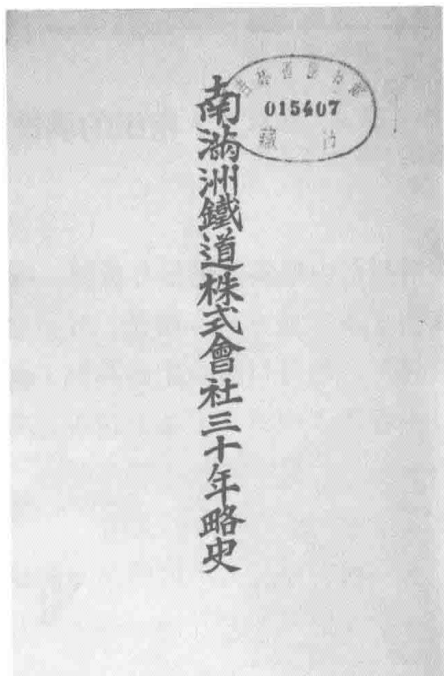 015407
藏
南滿洲鐵道株式會社三十年略史